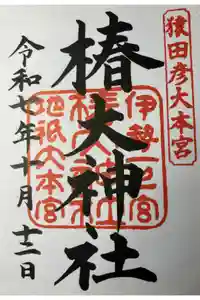 猿田彦大本宮
椿大神社
伊勢一之宮
椿大神社
地祇大本宮
令和七年十月十二日